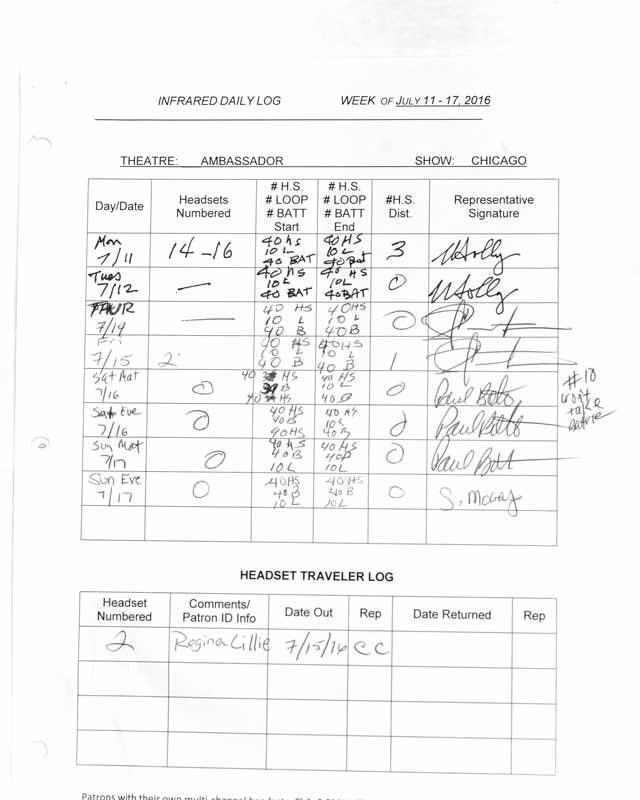 INFRARED DAILY LOG WEEK OF JULY 11 - 17, 2016
THEATRE: AMBASSADOR SHOW: CHICAGO
Day/Date Headsets Numbered # H.S. # LOOP # BATT Start # H.S. # LOOP # BATT End #H.S. Dist. Representative Signature
Mon 7/11 14 - 16 40 hs 10 L 40 BAT 40 HS 10 L 40 Bat 3
Tues 7/12 — 40 hs 10 L 40 BAT 40 HS 10L 40 BAT 0
THUR 7/14 — 40 HS 10 L 40 B 40 HS 10 L 40 B 0
Fri 7/15 2 40 HS 10 L 40 B 40 HS 10 L 40 B 1
Sat Mat 7/16 0 40 HS 40 B 40 HS 10 L 40 B 0 Paul Botts
Sat Eve 7/16 40 HS 40 B 40 HS 10 L 40 B Paul Botts
Sun Mat 7/17 0 40 HS 40 B 10 L 40 HS 40 B 10 L 0 Paul Bott
Sun Eve 7/17 0 40 HS 40 B 10 L 40 HS 40 B 10 L 0
#10
won't
take
HEADSET TRAVELER LOG
Headset Numbered Comments/ Patron ID Info Date Out Rep Date Returned Rep
2 Regina Lillie 7/15/16 CC
Patrons with their own multi-channel